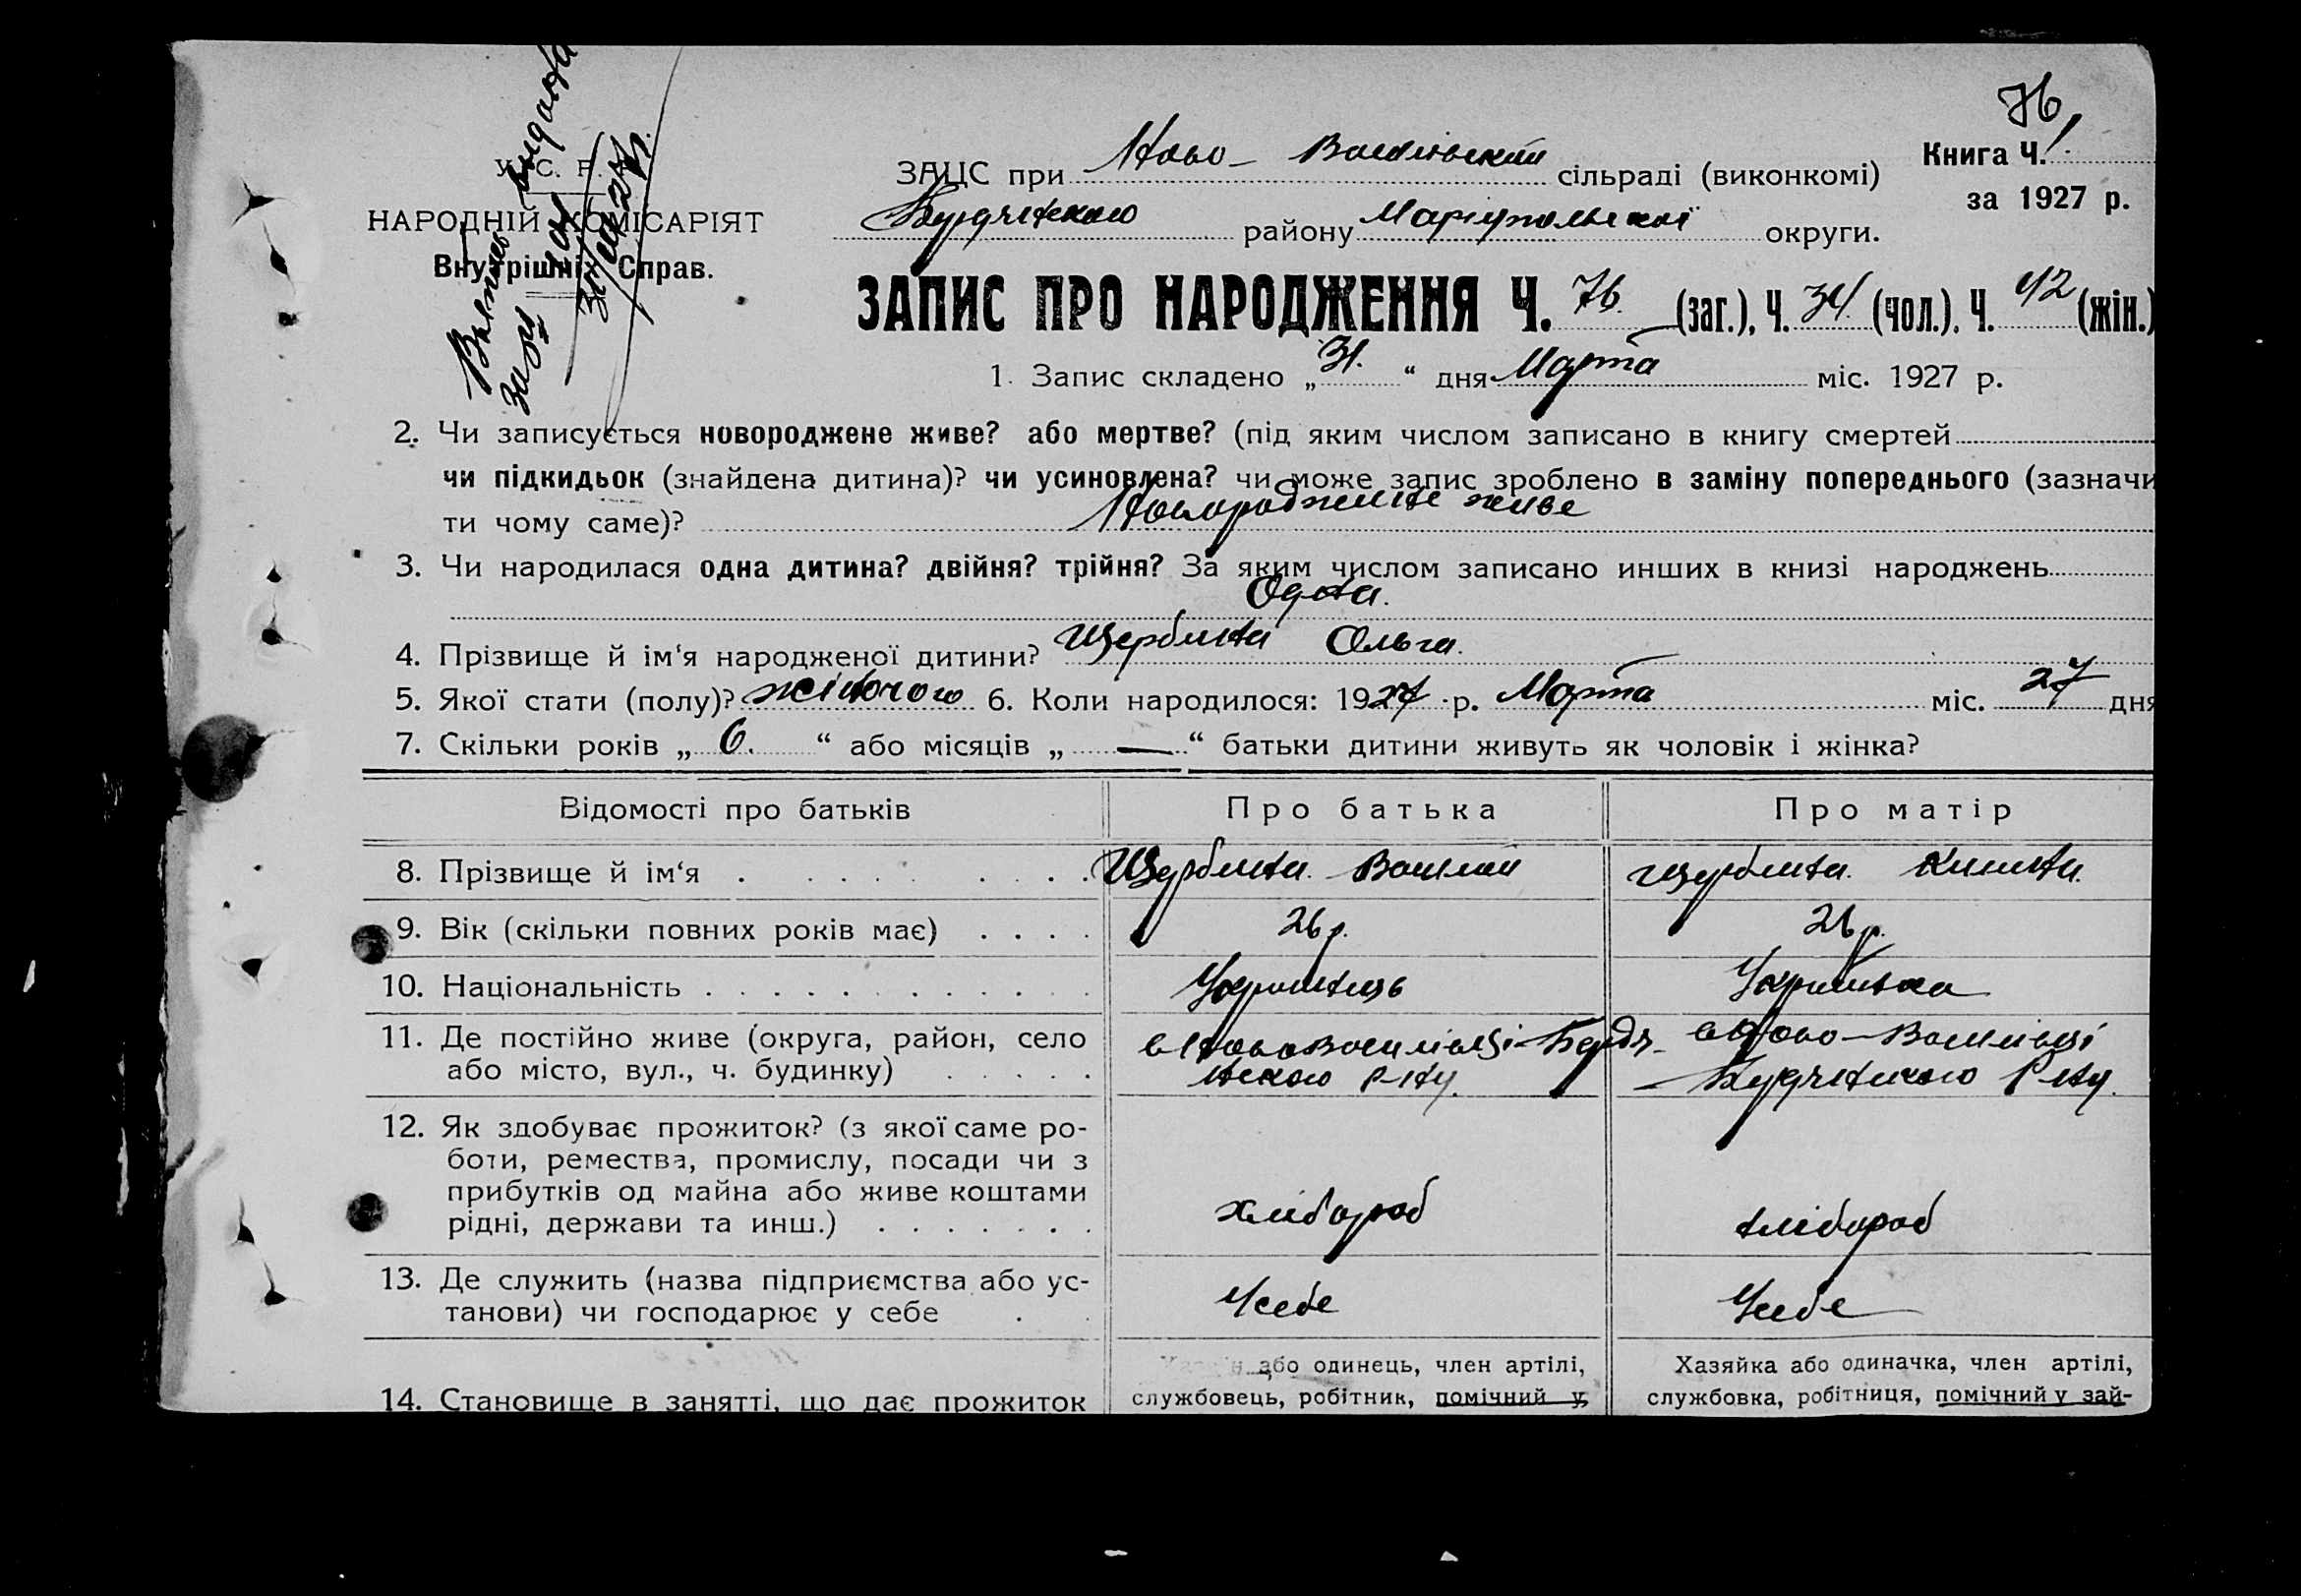 76
Выпись выдана
за №
31/III 27 г.
У. С. Р. Р.
НАРОДНІЙ КОМІСАРІЯТ
Внутрішніх Справ.
ЗАЦС при Ново-Василівский сільраді (виконкомі)
Книга Ч. 1.
за 1927 р.
Бердянского району Маріупольскої округи.
ЗАПИС ПРО НАРОДЖЕННЯ Ч. 76. (заг.), Ч. 34 (чол.), Ч. 42 (жін.)
1. Запис складено „31.“ дня Марта міс. 1927 р.
2. Чи записується новороджене живе? або мертве? (під яким числом записано в книгу смертей
чи підкидьок (знайдена дитина)? чи усиновлена? чи може запис зроблено в заміну попереднього (зазначи
ти чому саме)? Новороджене живе
3. Чи народилася одна дитина? двійня? трійня? За яким числом записано инших в книзі народжень
Одна.
4. Прізвище й ім‘я народженої дитини? Щербина Ольга.
5. Якої стати (полу)? жіночого 6. Коли народилося: 1927 р. Марта міс. 27 дня
7. Скільки років „6.“ або місяців „—“ батьки дитини живуть як чоловік і жінка?
Відомості про батьків Про батька Про матір
8. Прізвище й ім‘я . . . . . . . . Щербина. Василий Щербина.
9. Вік (скільки повних років має) . . . . 26 р. 26 р.
10. Національність . . . . . . . . . . . . Українець Українка
11. Де постійно живе (округа, район, село
або місто, вул., ч. будинку) . . . . .
в Ново Василівці Бердя-
нского р-ну.
в Ново-Василівці
Бердянского Р-ну.
12. Як здобуває прожиток? (з якої саме ро-
боти, ремества, промислу, посади чи з
прибутків од майна або живе коштами
рідні, держави та инш.) . . . . . . .
хлібороб
хлібороб
13. Де служить (назва підприємства або ус-
танови) чи господарює у себе . .
Усебе
Усебе
14. Становище в занятті, що дає прожиток
або одинець, член артілі,
службовець, робітник, помічний у
Хазяйка або одиначка, член артілі,
службовка, робітниця, помічний у зай-